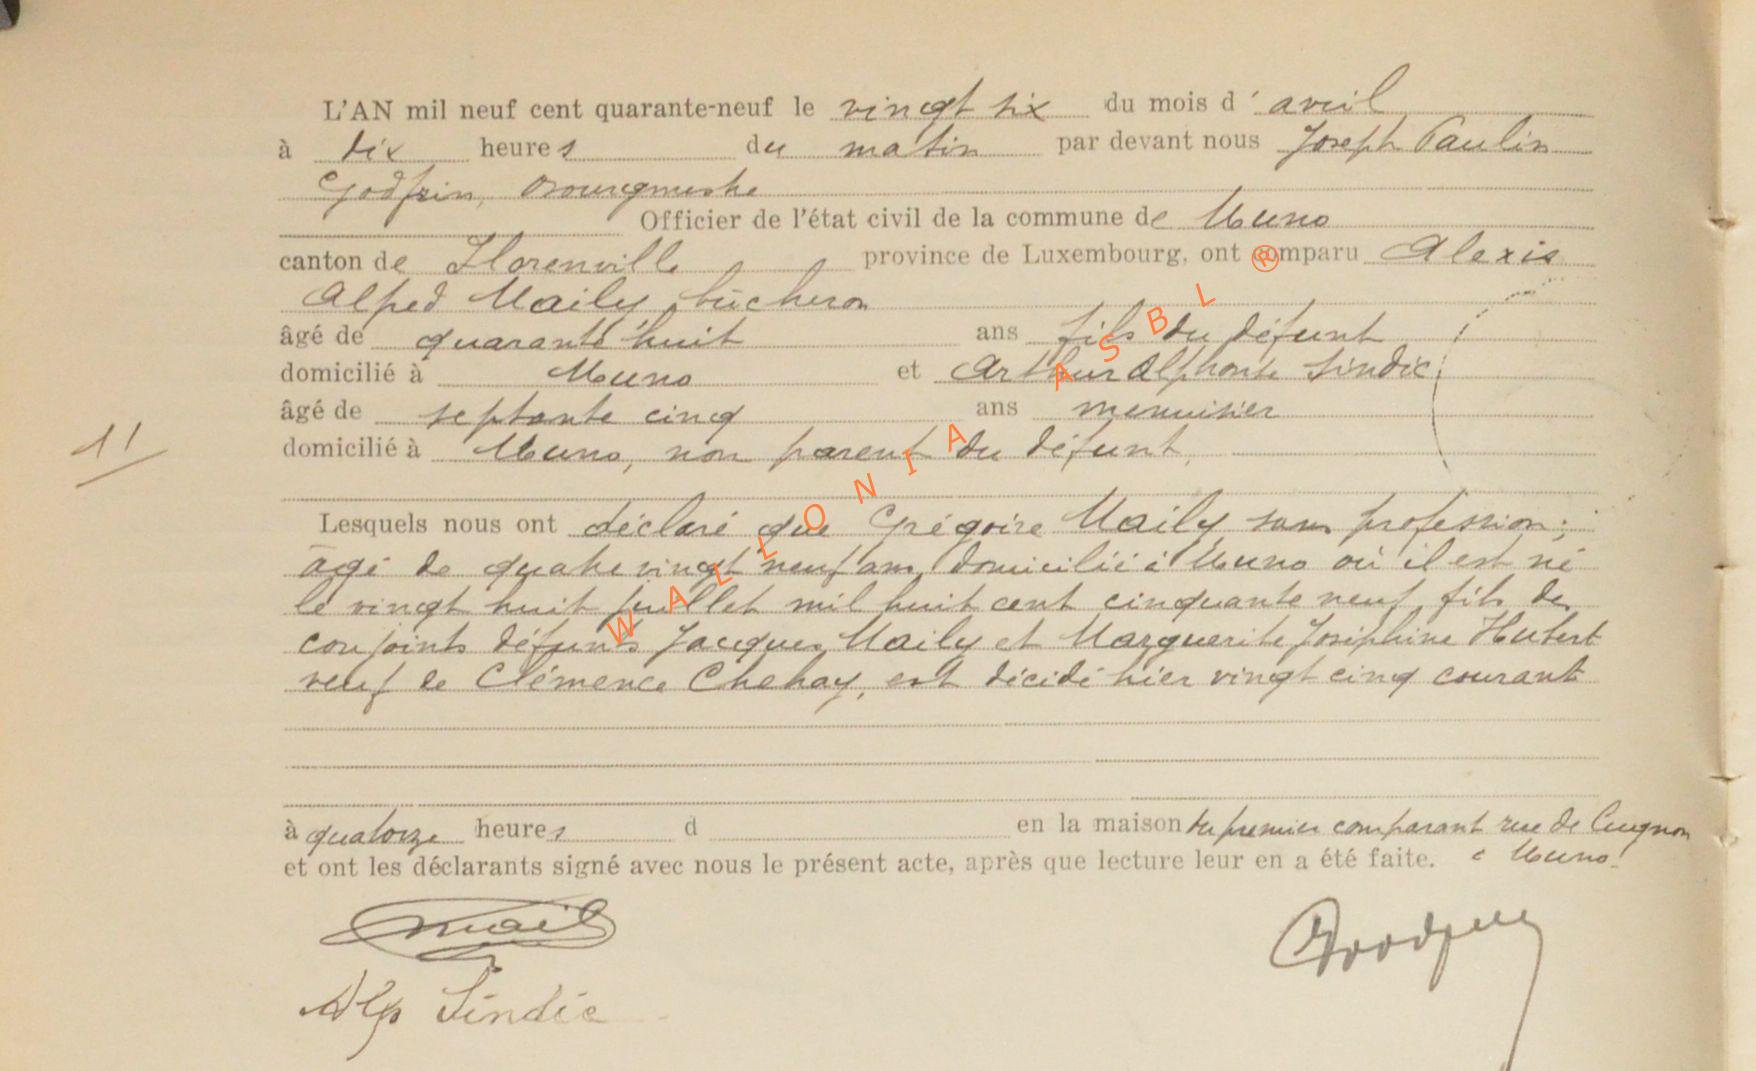 L'AN mil neuf cent quarante-neuf le vingt six du mois d' avril
à dix heures du matin par devant nous Joseph Paulin
Godfrin, Bourgmestre
Officier de l'état civil de la commune de Muno
canton de Florenville province de Luxembourg, ont comparu Alexis
Alfred Maily, bûcheron
âgé de quarante huit ans fils du défunt
domicilié à Muno et Arthur Alphonse Sindic
âgé de septante cinq ans menuisier
11
domicilié à Muno, non parent du défunt,
Lesquels nous ont déclaré que Grégoire Maily, sans profession,
âgé de quatre vingt neuf ans, domicilié à Muno où il est né
le vingt huit juillet mil huit cent cinquante neuf, fils des
conjoints défunts Jacques Maily et Marguerite Joséphine Hubert
veuf de Clémence Chehay, est décédé hier vingt cinq courant
à quatorze heures d en la maison du premier comparant rue de Cugnon
et ont les déclarants signé avec nous le présent acte, après que lecture leur en a été faite. à Muno.
Maily
Alp Sindic
Godfrin
WALLONIA ASBL ®